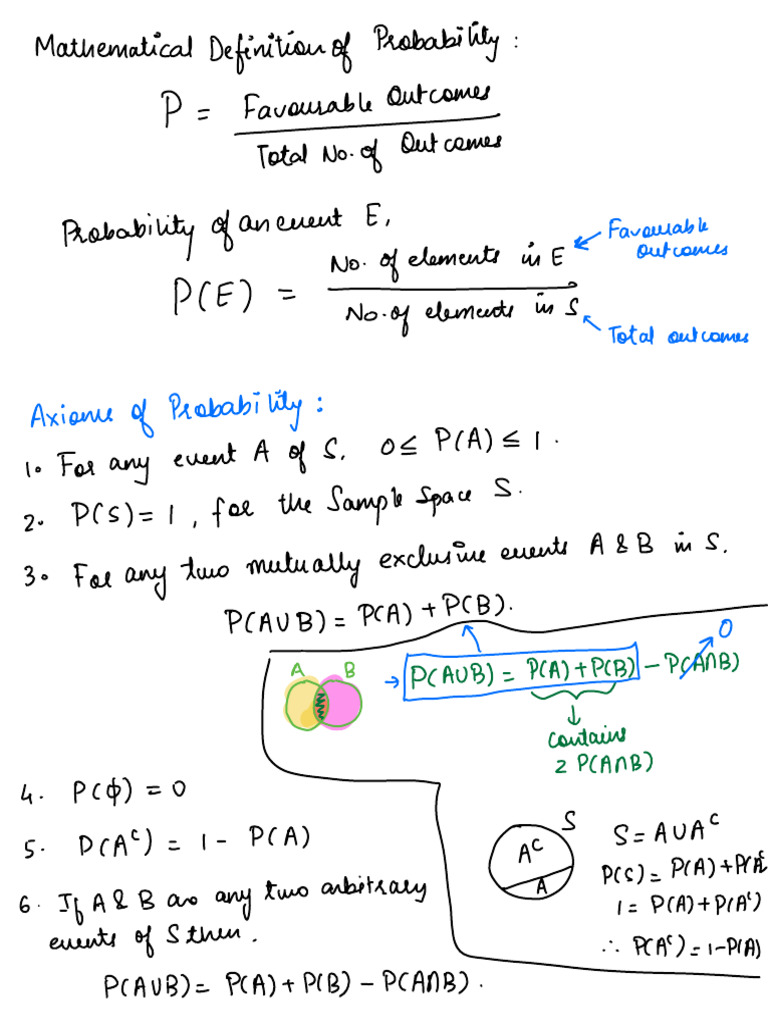 Mathematical Definition of Probability:
P = Favourable Outcomes / Total No. of Outcomes
Probability of an event E,
P(E) = No. of elements in E / No. of elements in S
Favourable
outcomes
Total outcomes
Axioms of Probability:
1. For any event A of S, 0 ≤ P(A) ≤ 1.
2. P(S) = 1, for the Sample Space S.
3. For any two mutually exclusive events A & B in S.
P(A∪B) = P(A) + P(B).
A B
P(A∪B) = P(A) + P(B) - P(A∩B)
0
Contains
2 P(A∩B)
4. P(ϕ) = 0
5. P(Aᶜ) = 1 - P(A)
6. If A & B are any two arbitrary
events of S then.
P(A∪B) = P(A) + P(B) - P(A∩B).
S
Aᶜ
A
S = A∪Aᶜ
P(S) = P(A) + P(Aᶜ
1 = P(A) + P(Aᶜ)
∴ P(Aᶜ) = 1 - P(A)